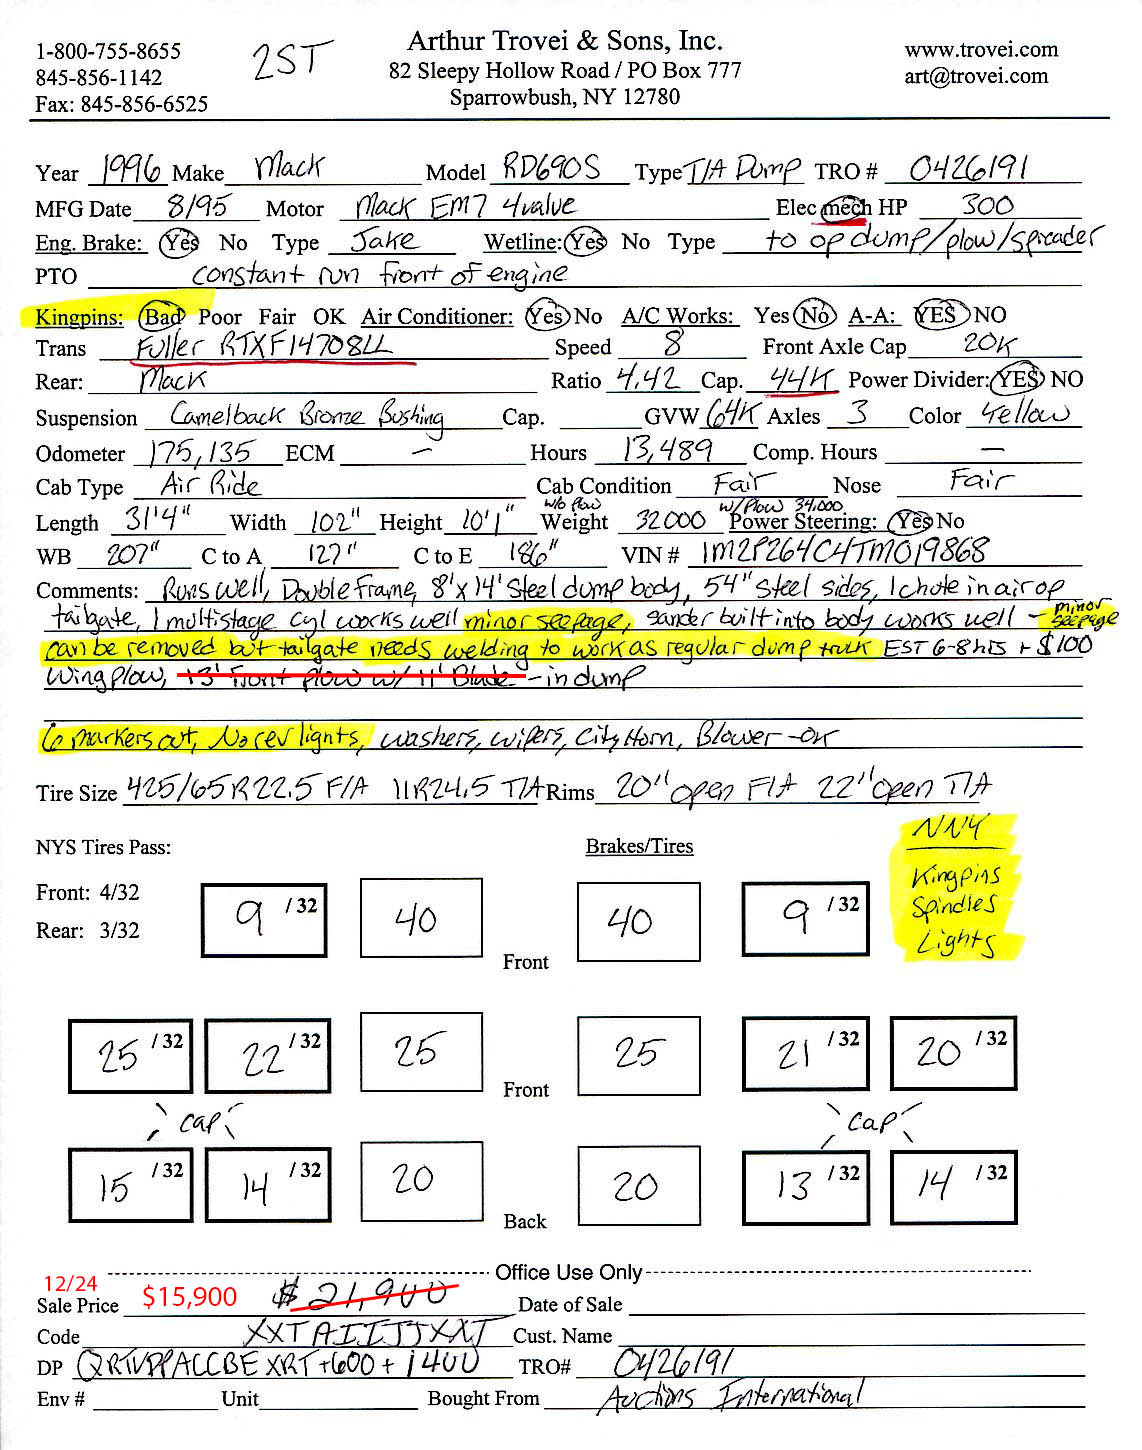 1-800-755-8655 2ST Arthur Trovei & Sons, Inc. www.trovei.com
845-856-1142 82 Sleepy Hollow Road / PO Box 777 art@trovei.com
Fax: 845-856-6525 Sparrowbush, NY 12780
Year 1996 Make Mack Model RD690S Type T/A Dump TRO # 0426191
MFG Date 8/95 Motor Mack EM7 4valve Elec mech HP 300
Eng. Brake: Yes No Type Jake Wetline: Yes No Type to op dump/plow/spreader
PTO constant run front of engine
Kingpins: Bad Poor Fair OK Air Conditioner: Yes No A/C Works: Yes No A-A: YES NO
Trans Fuller RTXF14708LL Speed 8 Front Axle Cap 20K
Rear: Mack Ratio 4.42 Cap. 44K Power Divider: YES NO
Suspension Camelback Bronze Bushing Cap. GVW 64K Axles 3 Color Yellow
Odometer 175,135 ECM — Hours 13,489 Comp. Hours —
Cab Type Air Ride Cab Condition Fair Nose Fair
w/o plow w/plow 34,000
Length 31'4" Width 102" Height 10'1" Weight 32000 Power Steering: Yes No
WB 207" C to A 127" C to E 186" VIN # 1M2P264C4TM019868
Comments: Runs well, Double Frame, 8'x14' Steel dump body, 54" Steel sides, 1 chute in air op
tailgate, 1 multistage cyl works well minor seepage, sander built into body works well - minor seepage
can be removed but tailgate needs welding to work as regular dump truck EST 6-8hrs + $100
Wing plow, 13' Front plow w/ 11' Blade - in dump
6 markers out, No rev lights, washers, wipers, City Horn, Blower-OK
Tire Size 425/65R22.5 F/A 11R24.5 T/A Rims 20" open F/A 22" open T/A
NNY
NYS Tires Pass: Brakes/Tires
Kingpins
Front: 4/32 9 /32 40 40 9 /32 Spindles
Rear: 3/32 Lights
Front
25 /32 22 /32 25 25 21 /32 20 /32
Front
cap cap
15 /32 14 /32 20 20 13 /32 14 /32
Back
Office Use Only
12/24
Sale Price $15,900 $21,900 Date of Sale
Code XXTAIIJJXXJ Cust. Name
DP QRTVPPACCBE XRT +600 + 1400 TRO# 0426191
Env # Unit Bought From Auctions International